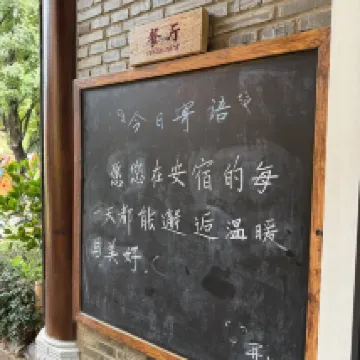 餐厅
今日寄语
愿您在安宿的每
一天都能邂逅温暖
与美好.